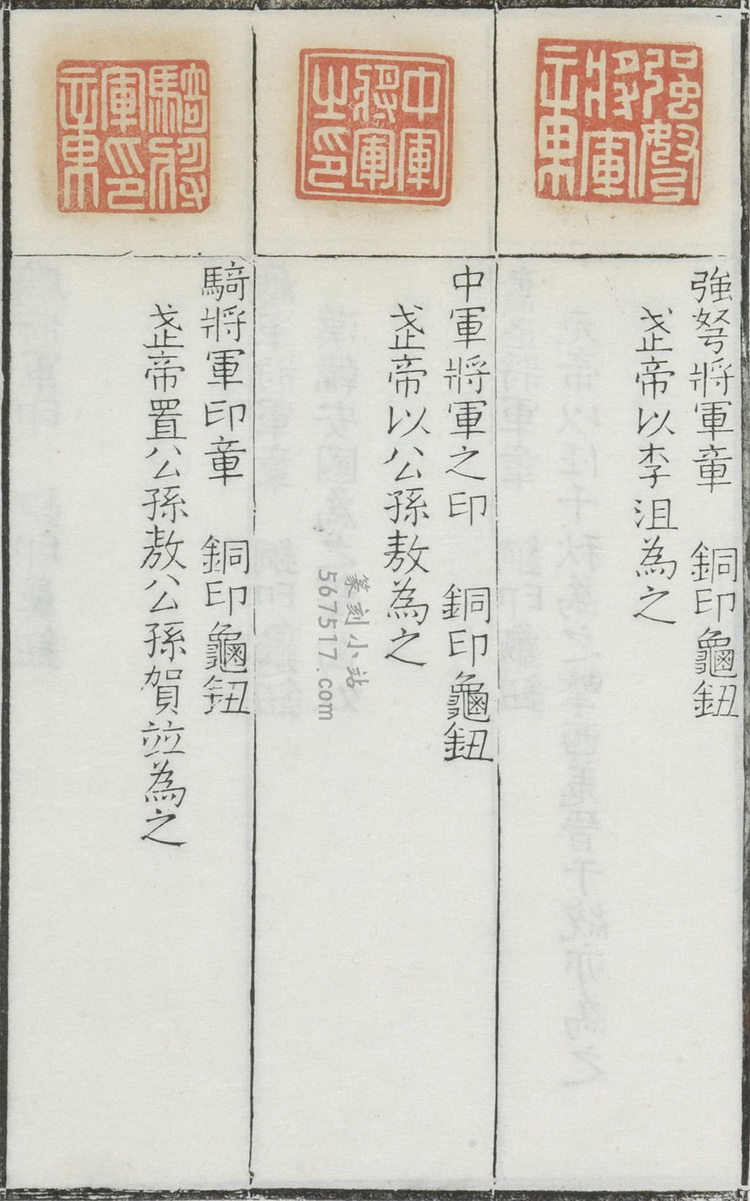 强弩將軍章
強弩將軍章　銅印龜鈕
武帝以李沮為之
中軍將軍之印
中軍將軍之印　銅印龜鈕
武帝以公孫敖為之
騎將軍印章
騎將軍印章　銅印龜鈕
武帝置公孫敖公孫賀竝為之
篆刻小站
567517.com